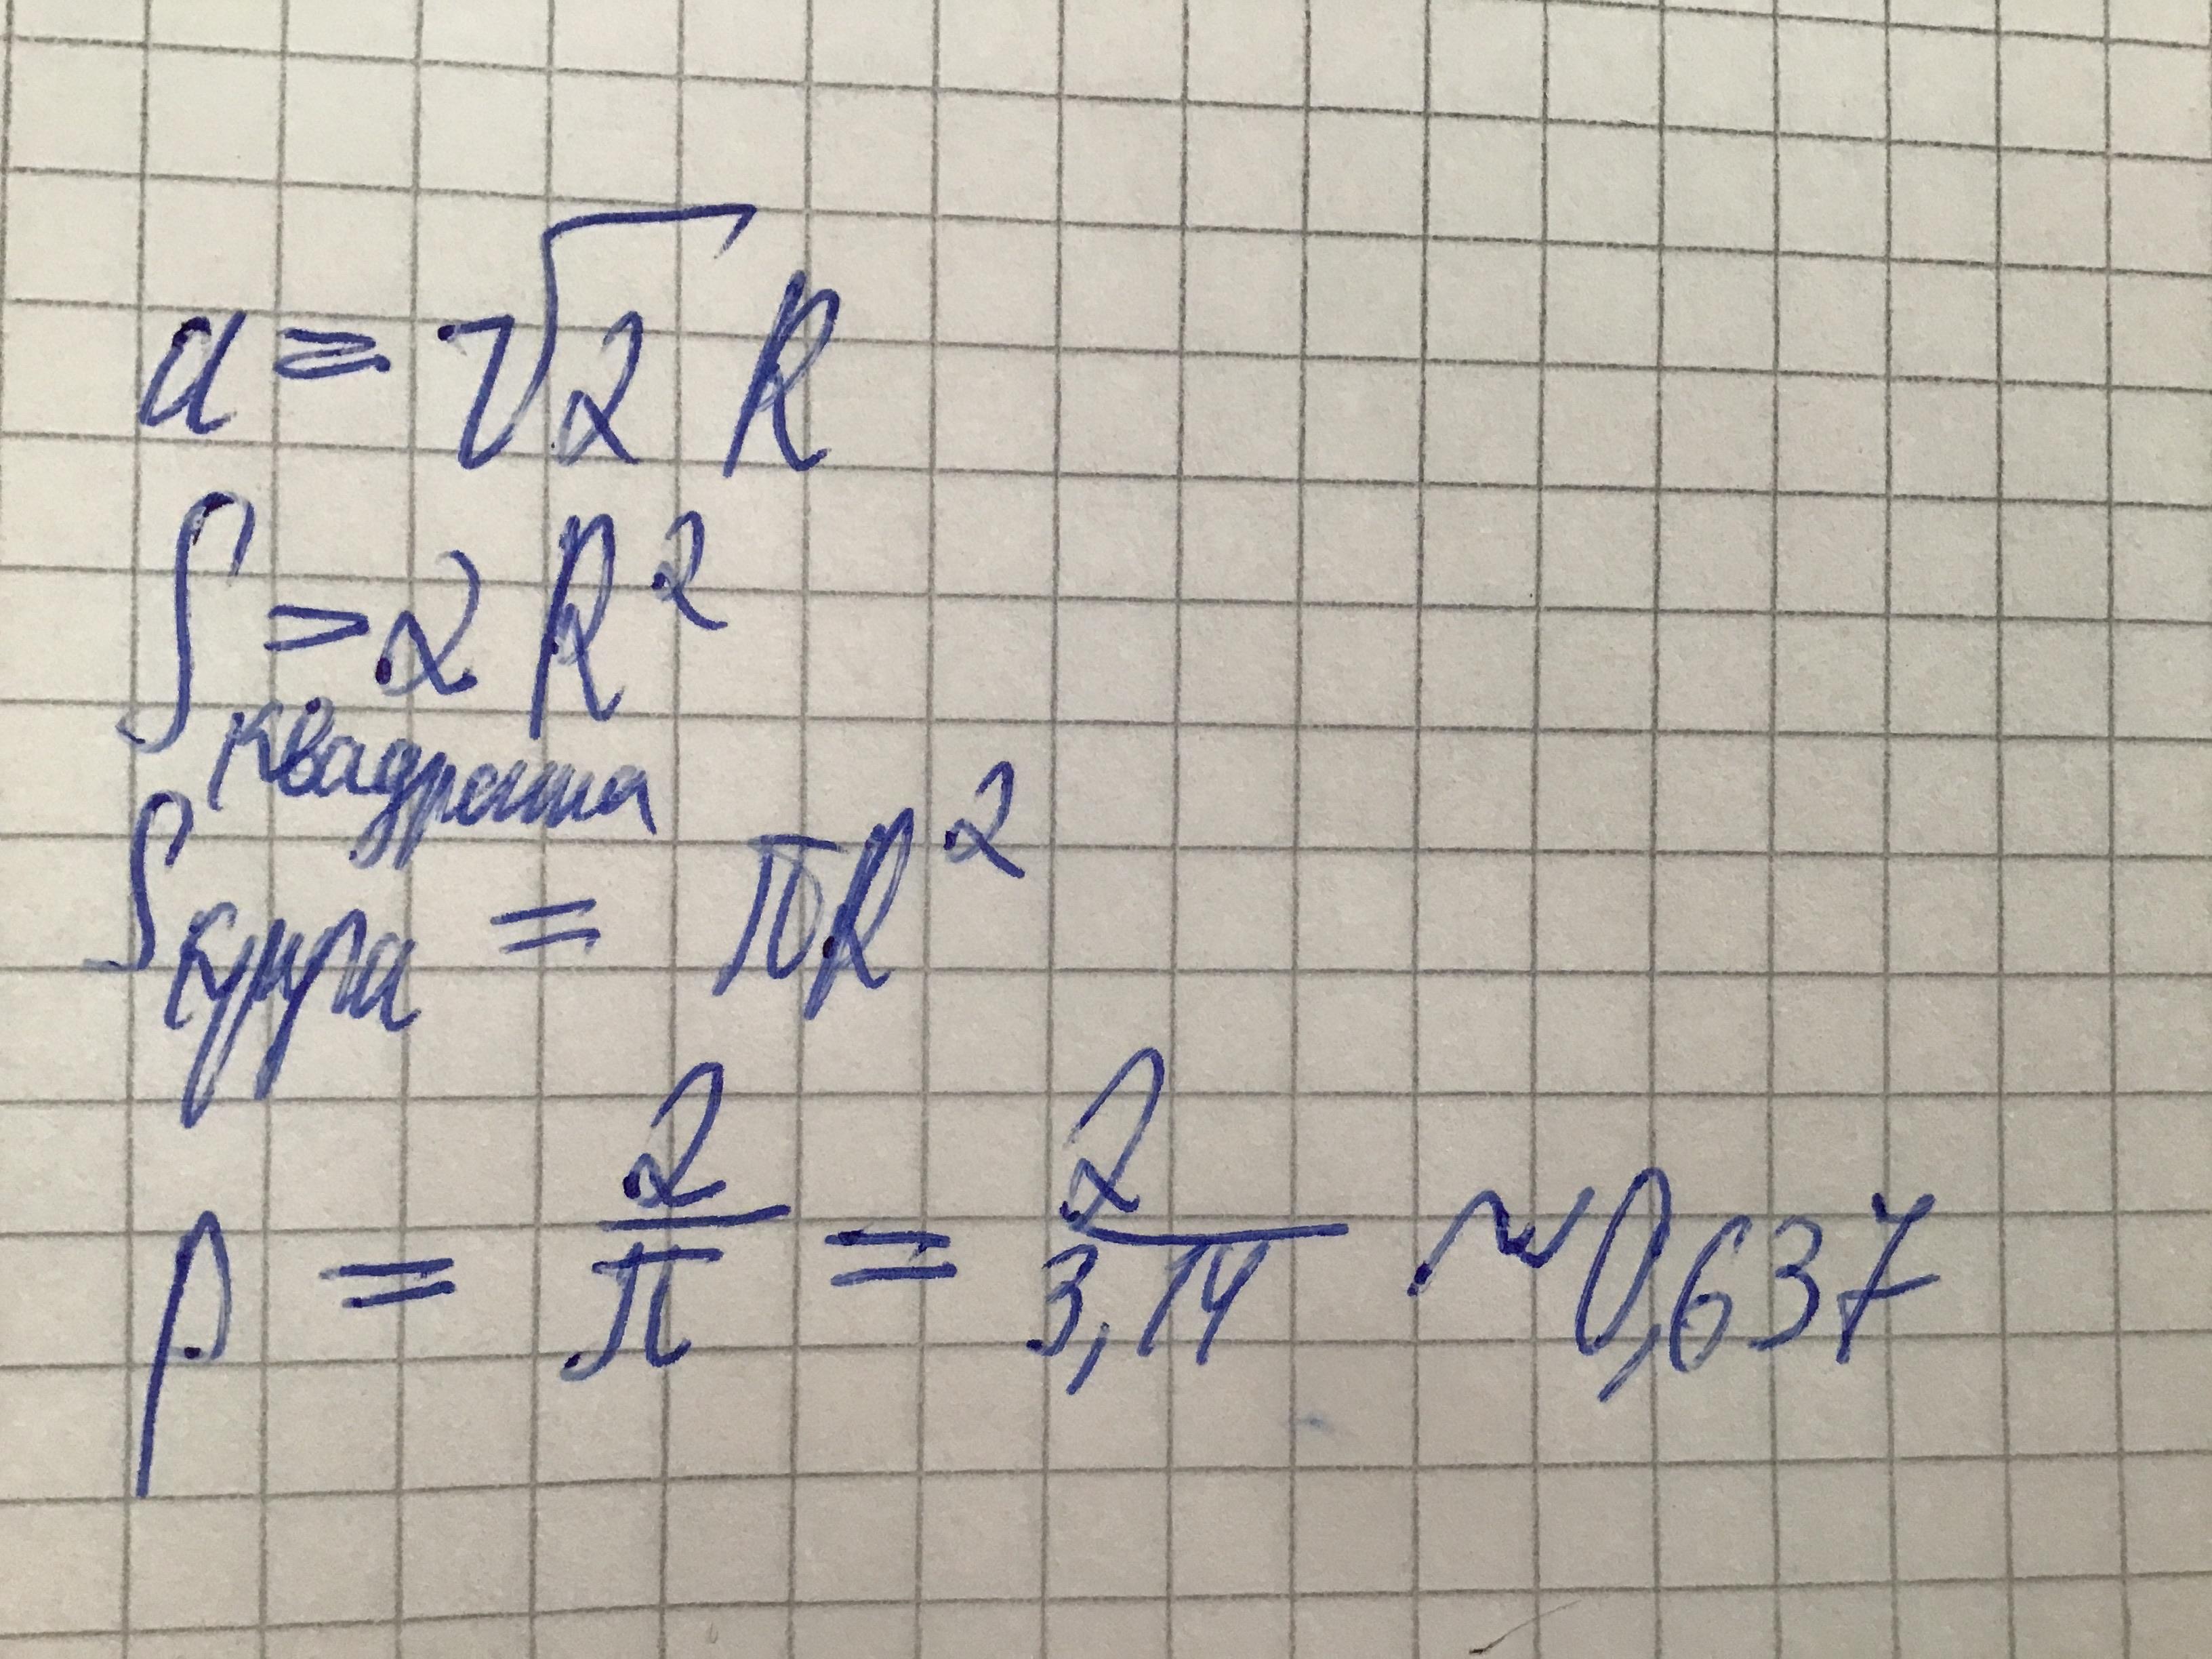 a = √2 R
S квадрата = 2 R²
S круга = πR²
p = 2/π = 2/3,14 ~ 0,637